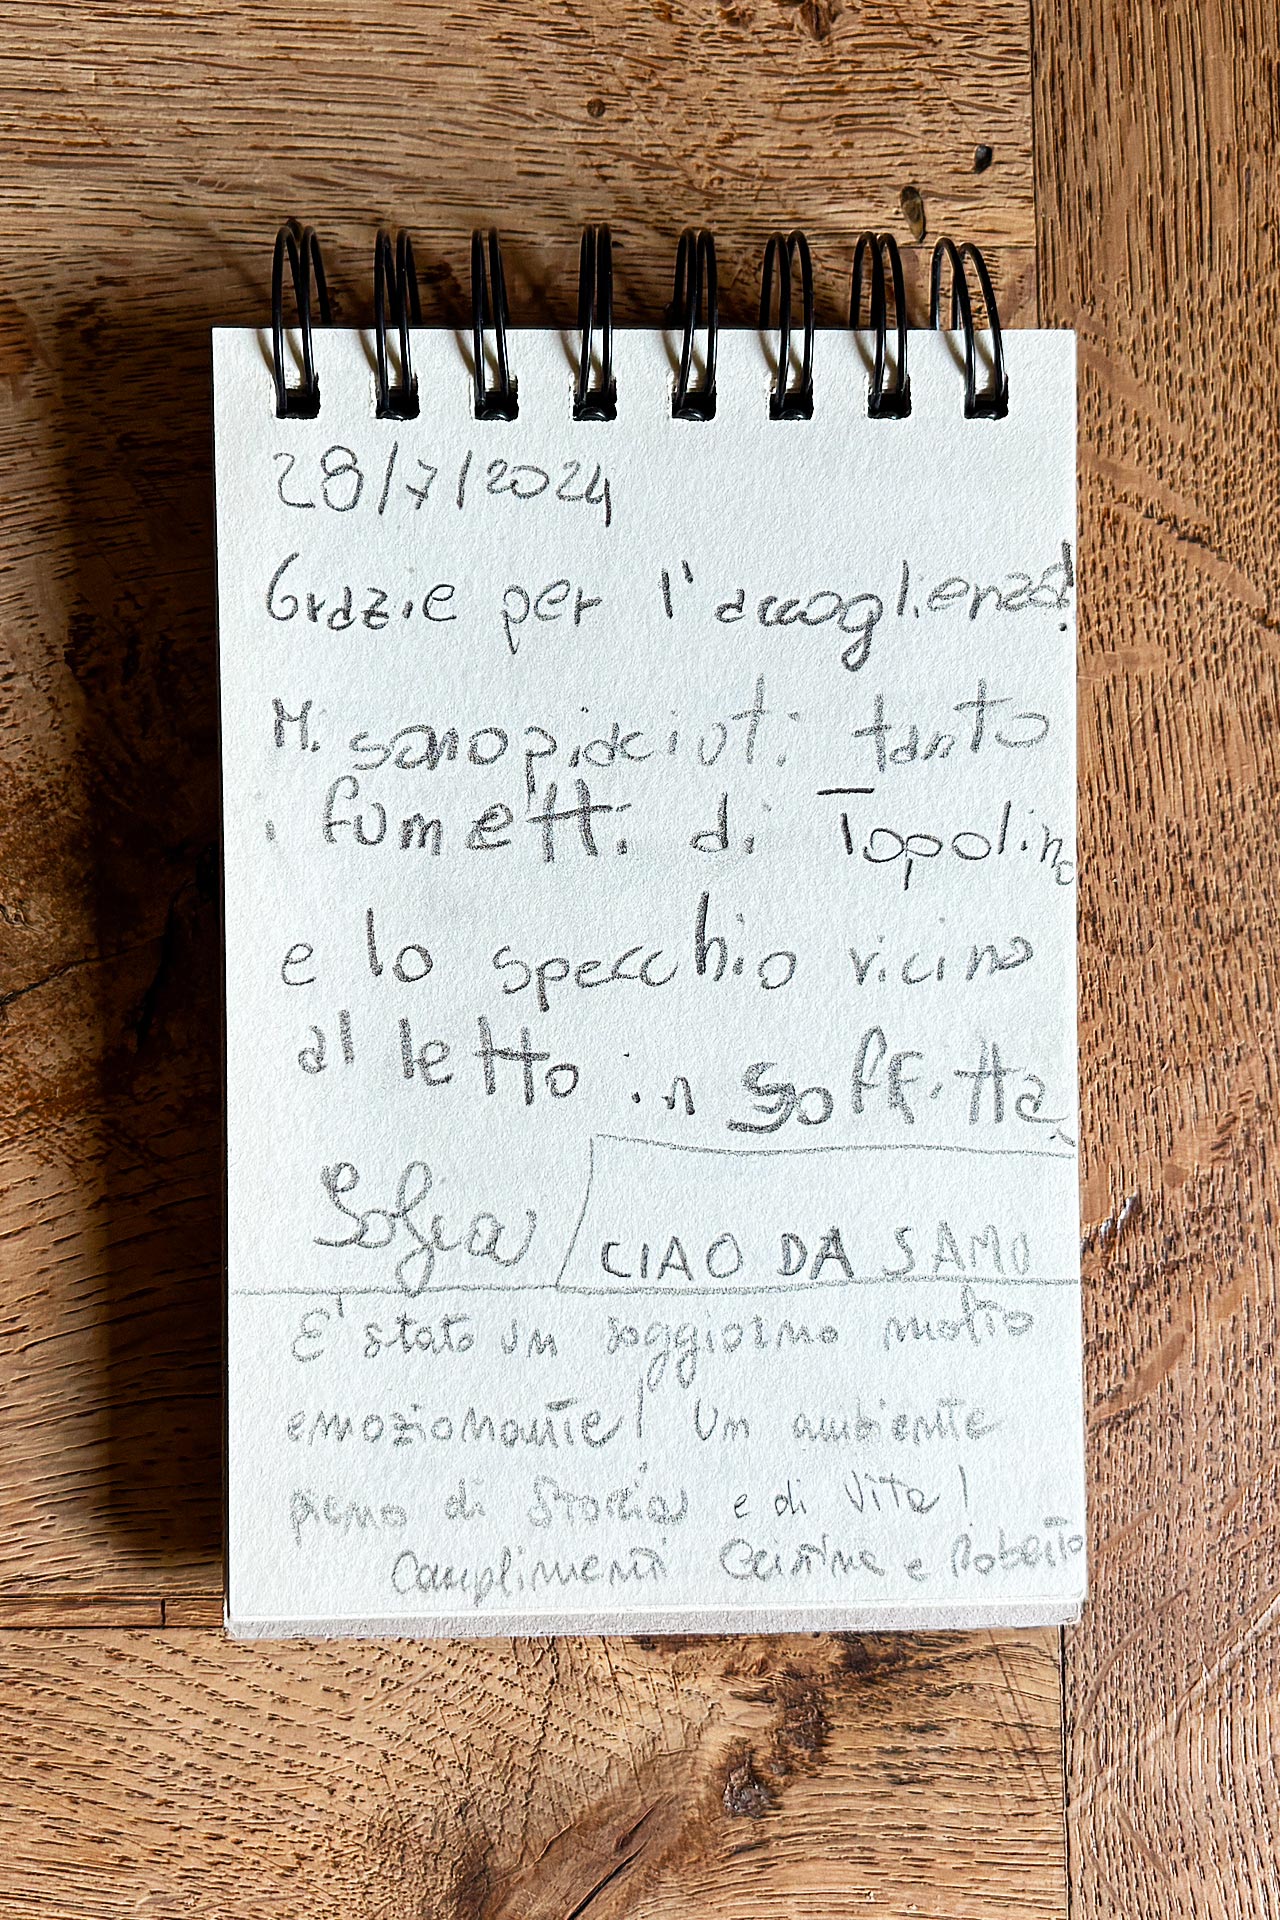 28/7/2024
Grazie per l'accoglienza!
Mi sono piaciuti tanto
i fumetti di Topolino
e lo specchio vicino
al letto in soffitta
Sofia
CIAO DA SAMU
E' stato un soggiorno molto
emozionante! Un ambiente
pieno di storia e di vita!
Complimenti Cristina e Roberto